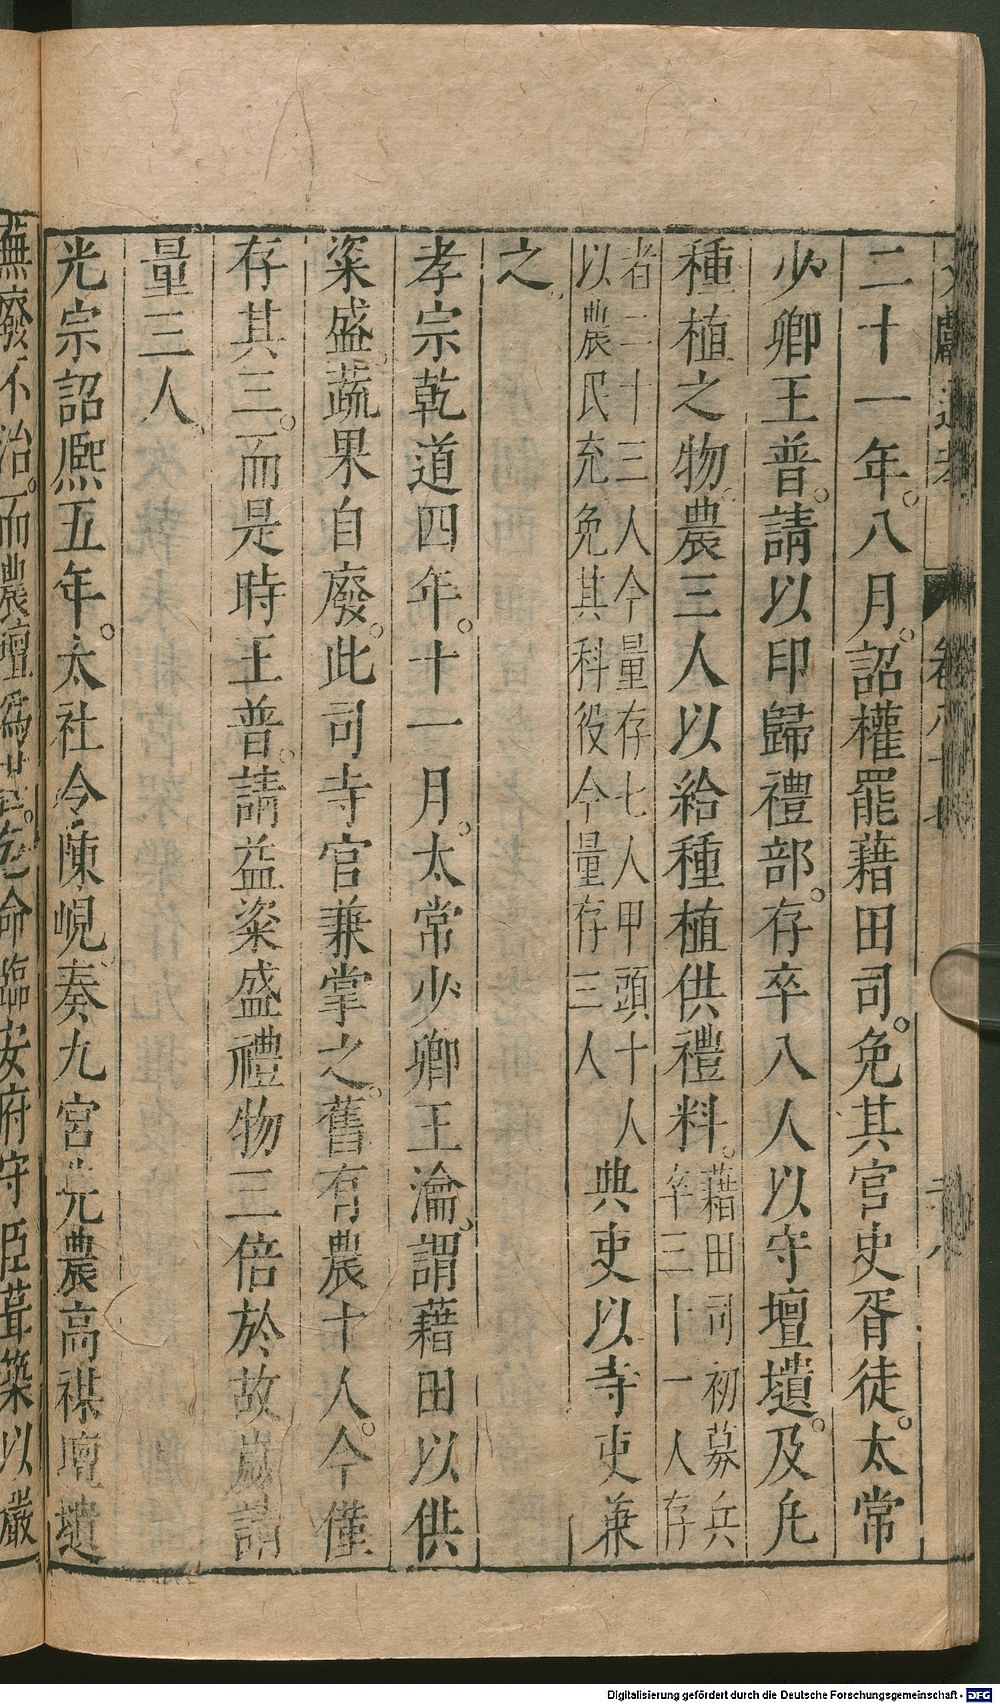 二十一年。八月。詔權罷藉田司。免其官吏胥徒。太常
少卿王普。請以印歸禮部。存卒八人以守壇壝。及凢
種植之物。農三人以給種植供禮料。藉田司初募兵
卒三十一人存
者二十三人今量存七人甲頭十人
以農民充免其科役今量存三人
典吏以寺吏兼
之。
孝宗乾道四年。十一月。太常少卿王瀹。謂藉田以供
粢盛。蔬果自廢。此司寺官兼掌之。舊有農十人。今僅
存其三。而是時王普。請益粢盛禮物三倍於故歲請
量三人。
光宗詔熙五年。太社令陳峴。奏九宮先農高禖壇壝
蕪廢不治。而農壇為甚。乞命臨安府守臣葺築以嚴
Digitalisierung gefördert durch die Deutsche Forschungsgemeinschaft - DFG